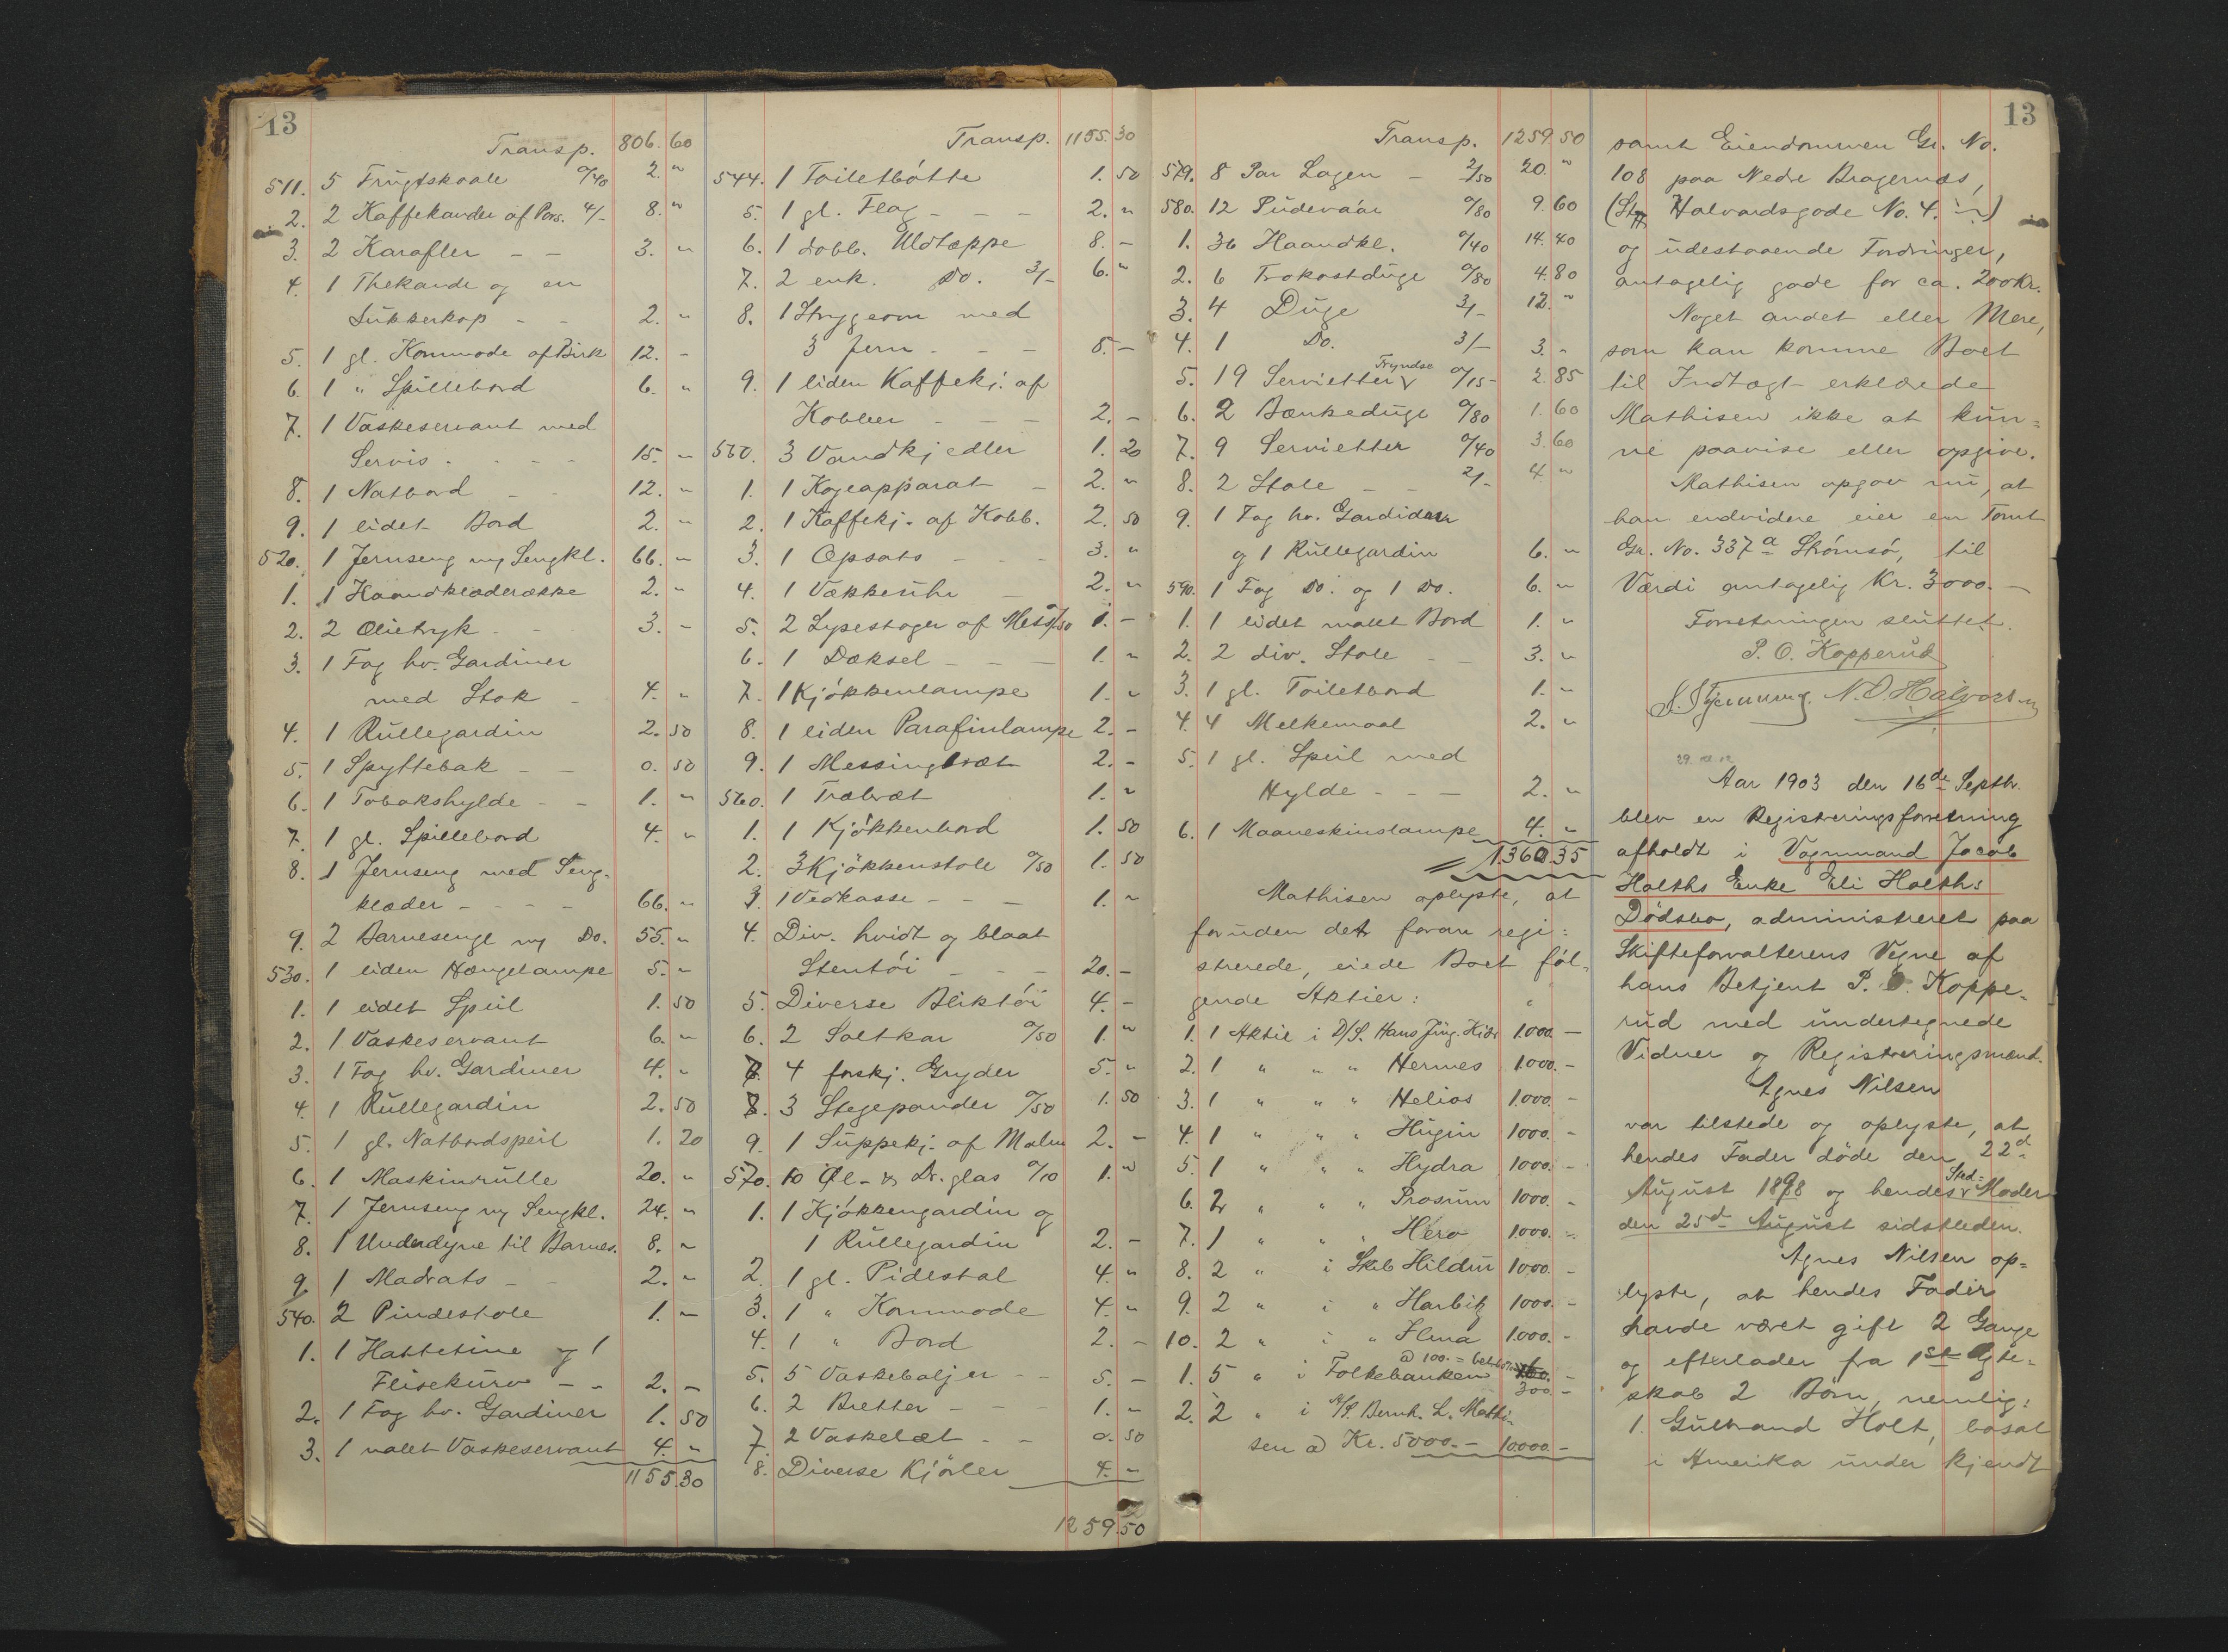 13
Transp. 806. 60
511. 5 Frugtskaale 0/40 2. "
2. 2 Kaffekander af Pors. 4/- 8. "
3. 2 Karafler - - 3. "
4. 1 Thekande og en
Sukkerkop - - 2. "
5. 1 gl. Kommode af Birk 12. -
6. 1 " Spillebord 6. "
7. 1 Vaskeservant med
Servis - - - 15. "
8. 1 Natbord - - 12. "
9. 1 lidet Bord 2. "
520. 1 Jernseng m/ Sengkl. 66. -
1. 1 Haandklæderække 2. "
2. 2 Olietryk - - 3. -
3. 1 Fag hv. Gardiner
med Stok - 4. "
4. 1 Rullegardin 2. 50
5. 1 Spyttebak - - 0. 50
6. 1 Tobakshylde - - 1. "
7. 1 gl. Spillebord 4. "
8. 1 Jernseng med Seng-
klæder - - - - 66. "
9. 2 Barnesenge m/ Do. 55. "
530. 1 liden Hængelampe 5. "
1. 1 lidet Speil 1. 50
2. 1 Vaskeservant 6. "
3. 1 Fag hv. Gardiner 4. "
4. 1 Rullegardin 2. 50
5. 1 gl. Natbordspeil 1. 20
6. 1 Maskinrulle 20. "
7. 1 Jernseng m/ Sengkl. 24. "
8. 1 Underdyne til Barnes. 8. "
9. 1 Madrats - - 2. "
540. 2 Pindestole 1. -
1. 1 Hattetine og 1
Flisekurv - - 2. -
2. 1 Fag hv. Gardiner 1. 50
3. 1 malet Vaskeservant 4. "
1155.30
Transp. 1155. 30
544. 1 Toiletbøtte 1. 50
5. 1 gl. Flag - - - 2. "
6. 1 dobb. Uldtæppe 8. -
7. 2 enk. Do. 3/- 6. "
8. 1 Strygeovn med
3 Jern - - - 5. -
9. 1 liden Kaffekj. af
Kobber - - - 2. -
550. 3 Vandkjedler 1. 20
1. 1 Kogeapparat - 2. "
2. 1 Kaffekj. af Kobb. 2. 50
3. 1 Opsats - - - 3. "
4. 1 Vækkeuhr - 2. "
5. 2 Lysestager af Mess. 0/50 1. -
6. 1 Dæksel - - - 1. "
7. 1 Kjøkkenlampe 1. "
8. 1 liden Parafinlampe 2. -
9. 1 Messingbræt 2. -
560. 1 Træbræt 1. "
1. 1 Kjøkkenbord 1. 50
2. 3 Kjøkkenstole 0/50 1. 50
3. 1 Vedkasse - - - 1. "
4. Div. hvidt og blaat
Stentøi - - - 20. -
5. Diverse Bliktøi 4. -
6. 2 Saltkar 0/50 1. "
7. 4 forskj. Gryder 5. "
8. 3 Stegepander 0/50 1. 50
9. 1 Suppekj. af Malm 2. -
570. 10 Øl- & Dr.glas 0/10 1. "
1. 1 Kjøkkengardin og
1 Rullegardin 2. -
2. 1 gl. Pidestal 4. "
3. 1 " Kommode 4. "
4. 1 " Bord 2. -
5. 5 Vaskebaljer - - 5. -
6. 2 Bretter - - - 1. -
7. 2 Vaskebræt - - 0. 50
8. Diverse Kjørler 4. -
1259.50
Transp. 1259 50
579. 8 Par Lagen - 2/50 20. "
580. 12 Pudevaar 0/80 9. 60
1. 36 Haandkl. 0/40 14. 40
2. 6 Frokostduge 0/80 4. 80
3. 4 Duge 3/- 12. "
4. 1 Do. 3/- 3. "
5. 19 Servietter 0/15 - 2. 85
6. 2 Bænkeduge 0/80 1. 60
7. 9 Servietter 0/40 3. 60
8. 2 Stole - - 2/- 4 "
9. 1 Fag hv. Gardiner
og 1 Rullegardin 6. "
590. 1 Fag Do. og 1 Do. 6. "
1. 1 lidet malet Bord 1. "
2. 2 div. Stole - - 3. "
3. 1 gl. Toiletbord 1. "
4. 4 Melkemaal 2. "
5. 1 gl. Speil med
Hylde - - - 2. "
6. 1 Maaneskinslampe 4. "
1360.35
Mathisen oplyste, at
foruden det foran regi-
strerede, eiede Boet føl-
gende Aktier:
1. 1 Aktie i D/S. Hans 1.000. -
2. 1 " " " Hermes 1.000. -
3. 1 " " " Helios 1.000. -
4. 1 " " " Hugin 1000. -
5. 1 " " " Hydra 1000. -
6. 2 " " " Prosum 1000. -
7. 1 " " " Hero 1.000. -
8. 2 " i Skib Hildur 1000. -
9. 2 " i " Harbitz 1000. -
10. 2 " i " Alma 1.000. -
1. 5 " i Folkebanken à 100. - 300. -
2. 2 " i A/S. Bernh. L. Mathi-
sen à Kr. 5000. - 10.000 -
13
samt Eiendommen Gr. No.
108 paa Nedre Bragernæs,
(St. Halvardsgade No. 4.)
og udestaaende Fordringer,
antagelig gode for ca. 200 Kr.
Noget andet eller Mere,
som kan komme Boet
til Indtægt erklærede
Mathisen ikke at kun-
ne paavise eller opgive.
Mathisen opgav nu, at
han endvidere eier en Tomt
Gr. No. 337a Strømsø, til
Værdi antagelig Kr. 3000. -
Forretningen sluttet.
P. O. Kopperud
N. O. Halvorsen
Aar 1903 den 16de Septbr.
blev en Registreringsforretning
afholdt i Vognmand Jacob
Holths Enke Eli Holths
Dødsbo, administreret paa
Skifteforvalterens Vegne af
hans Betjent P. O. Koppe-
rud med undertegnede
Vidner og Registreringsmænd.
Agnes Nilsen
var tilstede og oplyste, at
hendes Fader døde den 22d
August 1898 og hendes Sted-Moder
den 25d August sidstleden.
Agnes Nilsen op-
lyste, at hendes Fader
havde været gift 2 Gange
og efterlader fra 1ste Ægte-
skab 2 Børn, nemlig:
1. Gulbrand Holt, bosat
i Amerika under kjendt